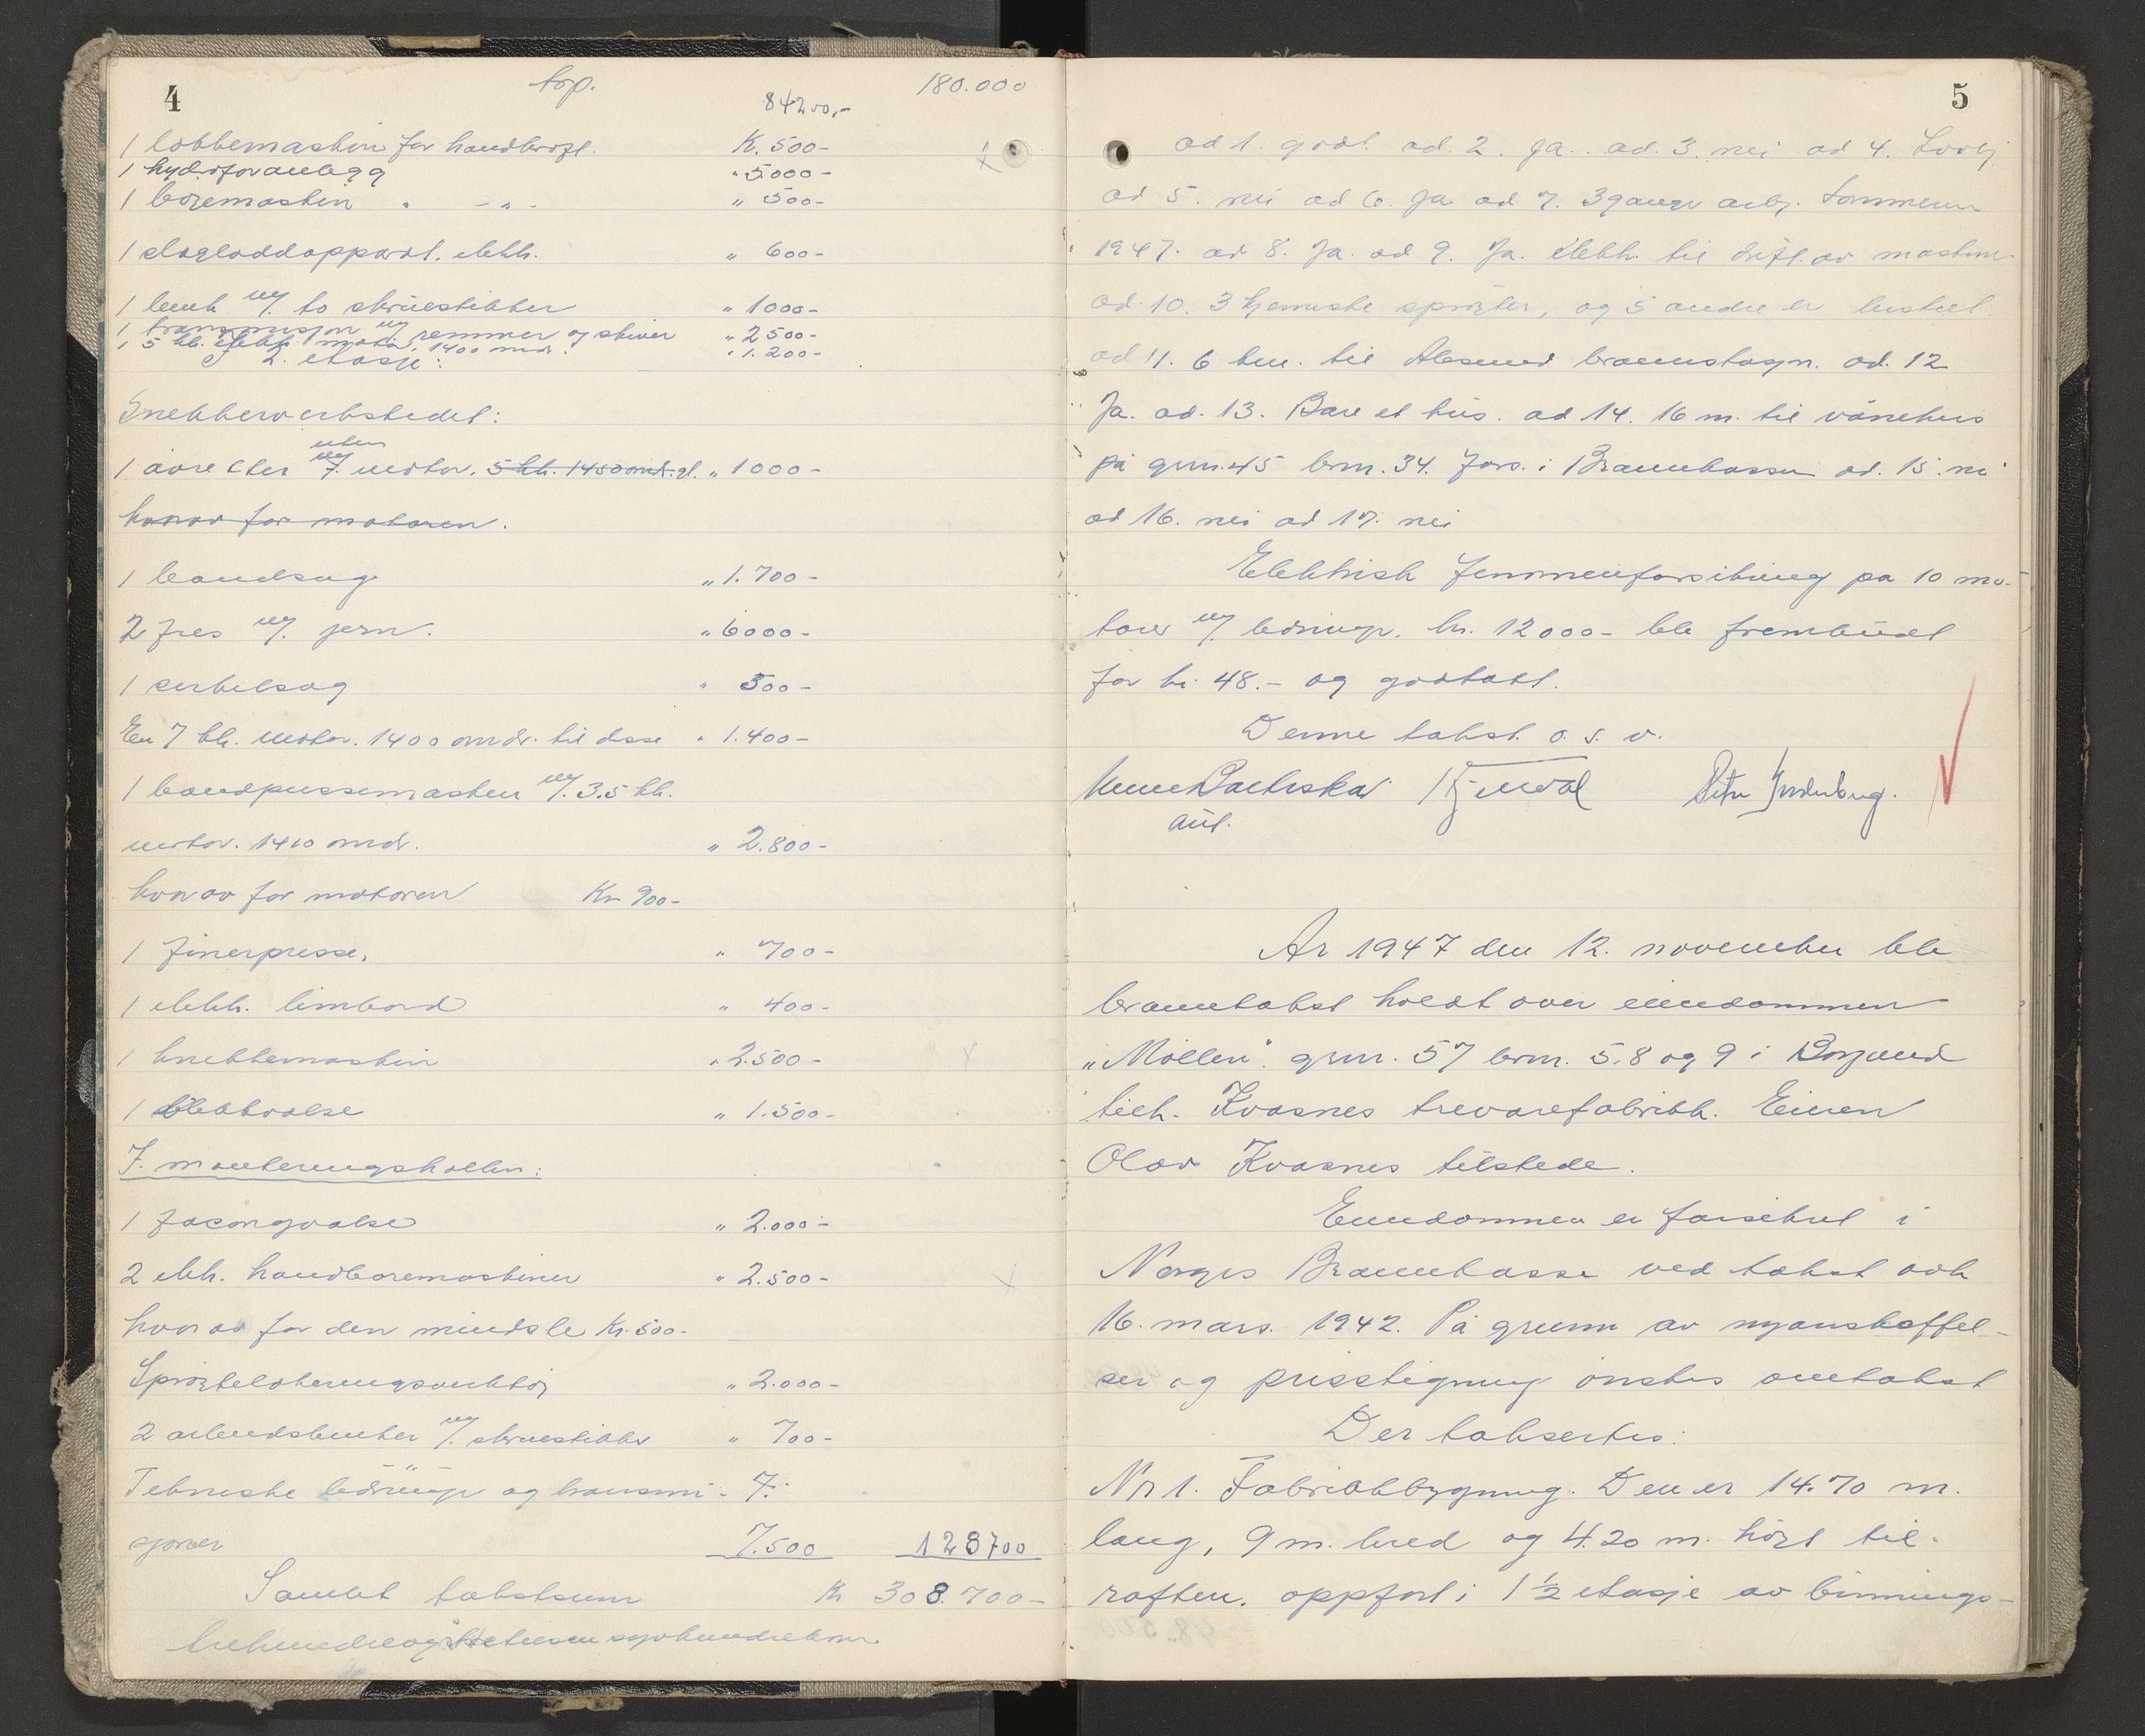 4
trp.
84200,-
180.000
1 lokkemaskin for handkraft. K. 500-
1 hydroforanlegg " 5.000-
1 boremaskin " -"- " 500-
1 slagloddapparat. elekk. " 600-
1 benk m/. to skruestikker " 1000-
1 transmisjon m/ remmer og skiver " 2500-
1 5 hk. elekk. motor 1400 omdr. " 1.200-
I 2. etasje:
Snekkerverkstedet:
uten
1 avretter m/. motor. 5 hk. 1450 omdr. gl. " 1000-
hvorav for motoren.
1 bandsag " 1.700-
2 fres m/. jern. " 6000-
1 sirkelsag " 500-
En 7 hk. motor. 1400 omdr. til disse " 1.400-
1 bandpussemaskin m/. 3.5 hk.
motor. 1410 omdr. " 2.800-
hvorav for motoren Kr 900-
1 finerpresse, " 700-
1 elekk. limbord " 400-
1 knekkemaskin " 2.500-
1 blekkvalse " 1.500-
I. monteringshallen:
1 facongvalse " 2.000-
2 elek. handboremaskiner " 2.500-
hvorav for den mindste Kr. 500-
Sprøytelakeringsverktøy " 2.000-
2 arbeidsbenker m/. skruestikker " 700-
Tekniske ledninger og transmi-
sjoner 7.500 128700
Samlet takstsum Kr 308.700-
trehundreogåttetusen syvhundrekroner.
5
ad 1. godt. ad. 2. Ja. ad. 3. nei ad 4. Lovlig
ad 5. nei ad 6. Ja ad 7. 3 ganger årlig. Sommeren
1947. ad 8. Ja. ad 9. Ja. Elekk. til drift. av maskiner
ad. 10. 3 kjemiske sprøiter, og 5 andre er bestilt.
ad 11. 6 km. til Ålesund brannstasjon. ad. 12
Ja. ad. 13. Bare et hus. ad 14. 16 m. til vånehus
på grnr. 45 brnr. 34. Fors. i Brannkassen ad. 15. nei
ad 16. nei ad 17. nei
Elektrisk fenomenforsikring på 10 mo-
torer m/ ledninger. kr. 12000- ble frembudt
for kr. 48.- og godtatt.
Denne takst o. s. v.
aut.
År 1947 den 12. november ble
branntakst holdt over eiendommen
"Møllen". grnr. 57 brnr. 5.8 og 9 i Borgund
tilh. Kvasnes trevarefabrikk. Eieren
Olav Kvasnes tilstede.
Eiendommen er forsikret i
Norges Brannkasse ved takst avh
16. mars. 1942. På grunn av nyanskaffel-
ser og prisstigning ønskes omtakst
Der takseres:
Nr 1. Fabrikkbygning. Den er 14.70 m.
lang, 9 m. bred og 4.20 m. høyt til
raften. oppført i 1½ etasje av binnings-